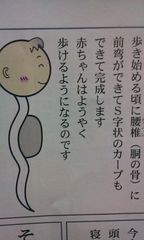 歩き始める頃に腰椎(胴の骨)に
前弯ができてS字状のカーブも
できて完成します
赤ちゃんはようやく
歩けるようになるのです
今
頭
そ